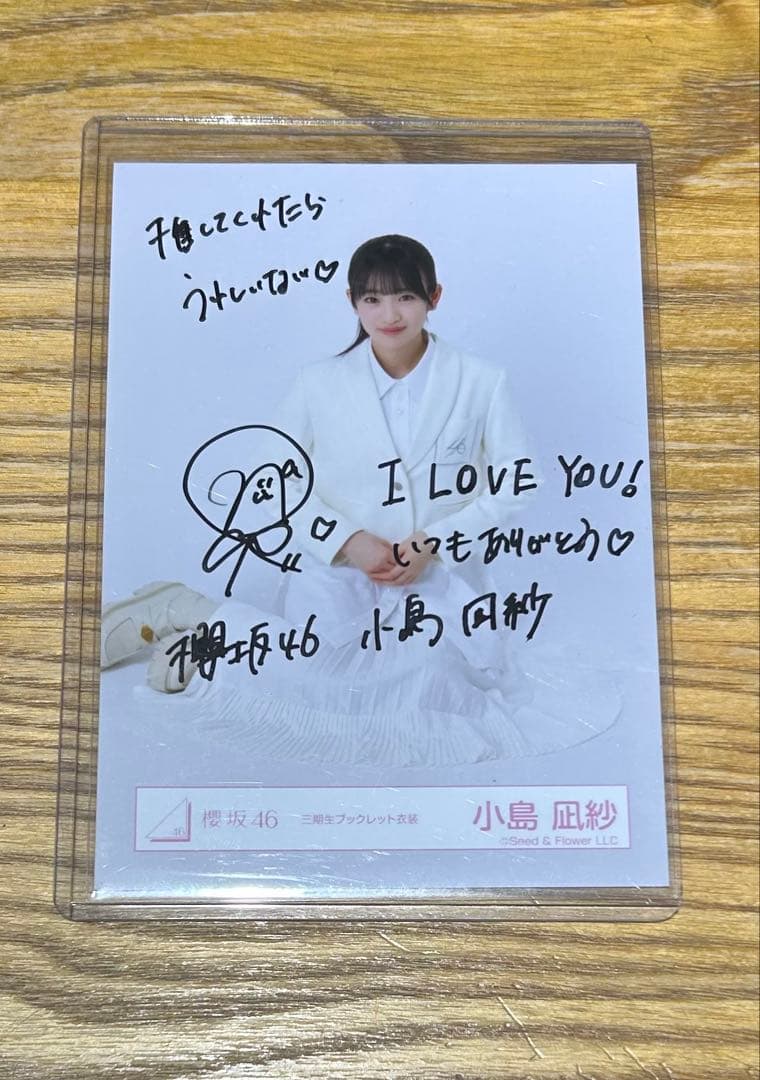 推してくれたら
うれしいない♡
I LOVE YOU!
いつもありがとう♡
櫻坂46 小島凪紗
46
46 櫻坂46 三期生ブックレット衣装 小島 凪紗
©Seed & Flower LLC